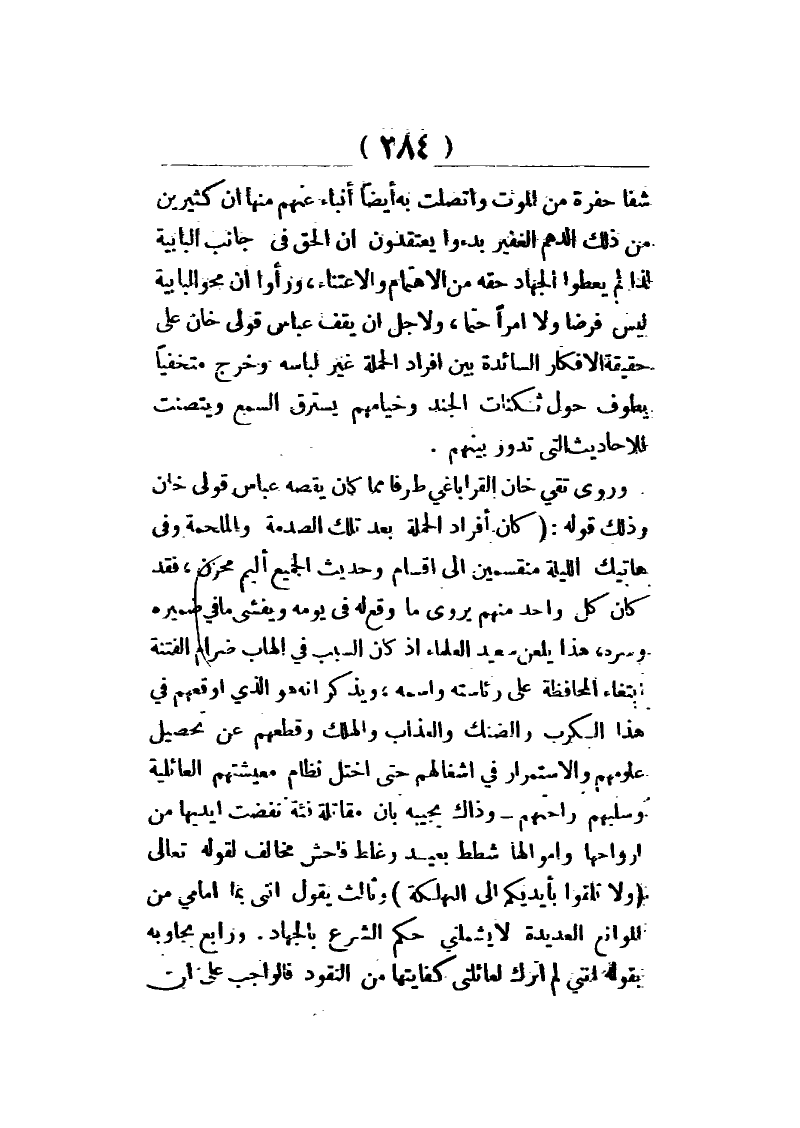 ( ٢٨٤ )
شفا حفرة من الموت واتصلت به أيضاً أنباء عنهم منها ان كثيرين
من ذلك الدهم الغفير بدءوا يعتقدون ان الحق فى جانب البابية
لذا لم يعطوا الجهاد حقه من الاهتمام والاعتناء، ورأوا ان محو البابية
ليس فرضا ولا امراً حتما، ولاجل ان يقف عباس قولى خان على
حقيقة الافكار السائدة بين افراد الحملة غير لباسه وخرج متخفياً
يطوف حول ثكنات الجند وخيامهم يسترق السمع ويتصنت
للاحاديث التى تدور بينهم .
وروى تقي خان القراباغي طرفا مما كان يقصه عباس قولى خان
وذلك قوله : ( كان أفراد الحملة بعد تلك الصدمة والملحمة وفى
هاتيك الليلة منقسمين الى اقسام وحديث الجميع أليم محزن، فقد
كان كل واحد منهم يروى ما وقع له فى يومه ويفشى ما في ضميره
وسره، هذا يلعن سعيد العلماء اذ كان السبب في الهاب ضرام الفتنة
ابتغاء المحافظة على رئاسته واسمه، ويذكر انه هو الذي اوقعهم في
هذا الكرب والضنك والعذاب والهلاك وقطعهم عن تحصيل
علومهم والاستمرار في اشغالهم حتى اختل نظام معيشتهم العائلية
وسلبهم راحتهم ــ وذاك يجيبه بان مقاتلة فئة نفضت ايديها من
ارواحها واموالها شطط بعيد وغلط فاحش مخالف لقوله تعالى
( ولا تلقوا بأيديكم الى التهلكة ) وثالث يقول اننى بما امامي من
الموانع العديدة لا يشملني حكم الشرع بالجهاد. ورابع يجاوبه
بقوله انني لم اترك لعائلتى كفايتها من النقود فالواجب على ان